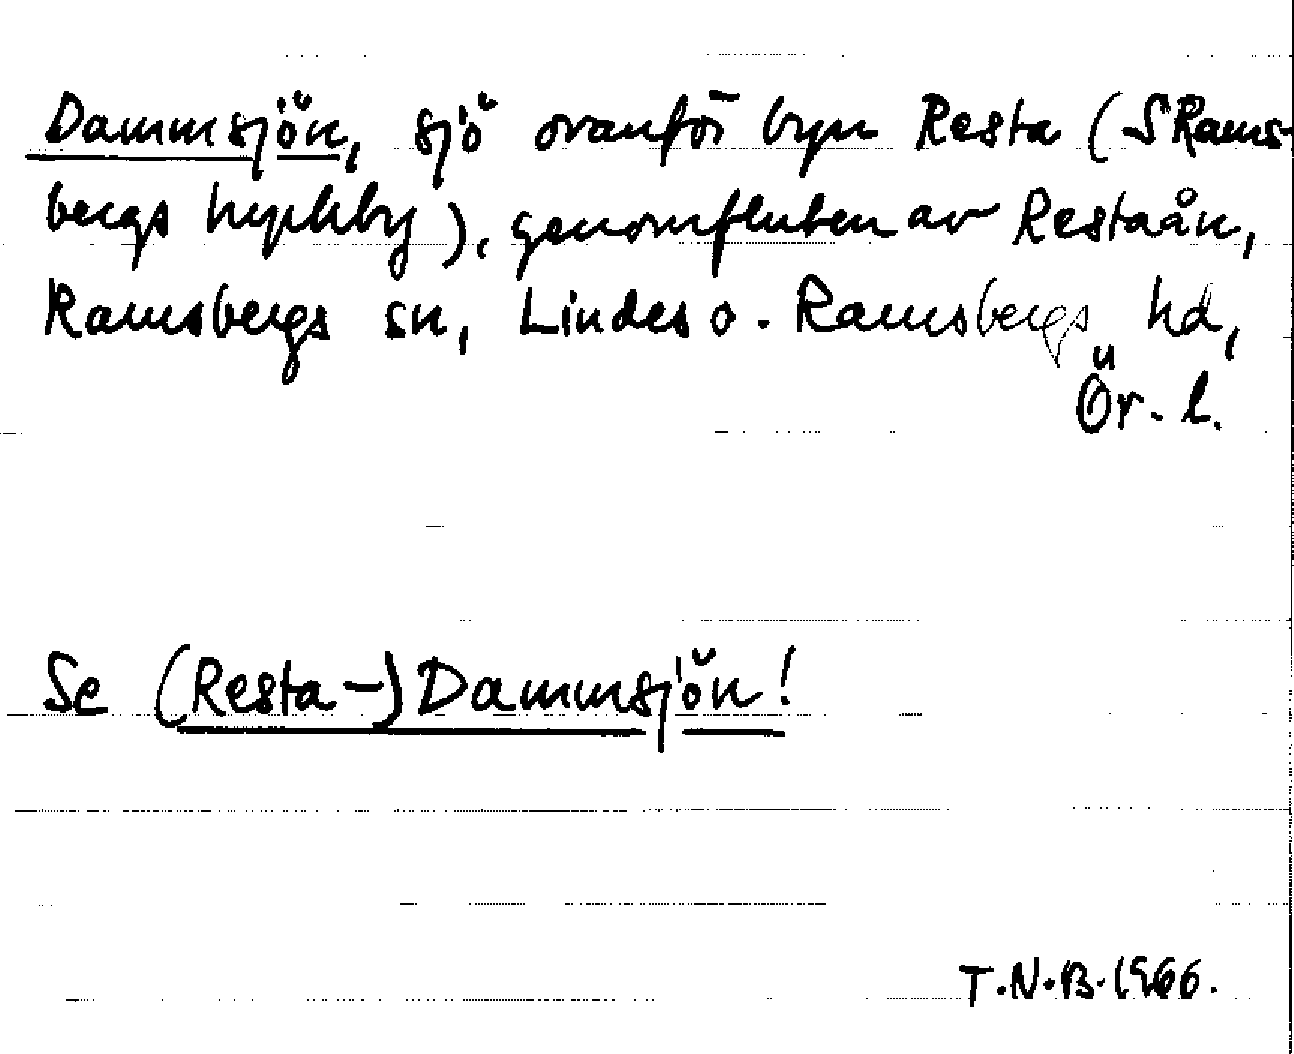 Dammsjön, sjö ovanför byn Resta (S Rams-
bergs kyrkby), genomfluten av Restaån,
Ramsbergs sn, Lindes o. Ramsbergs hd,
Ör. l.
Se (Resta-)Dammsjön!
T.N.B. 1966.